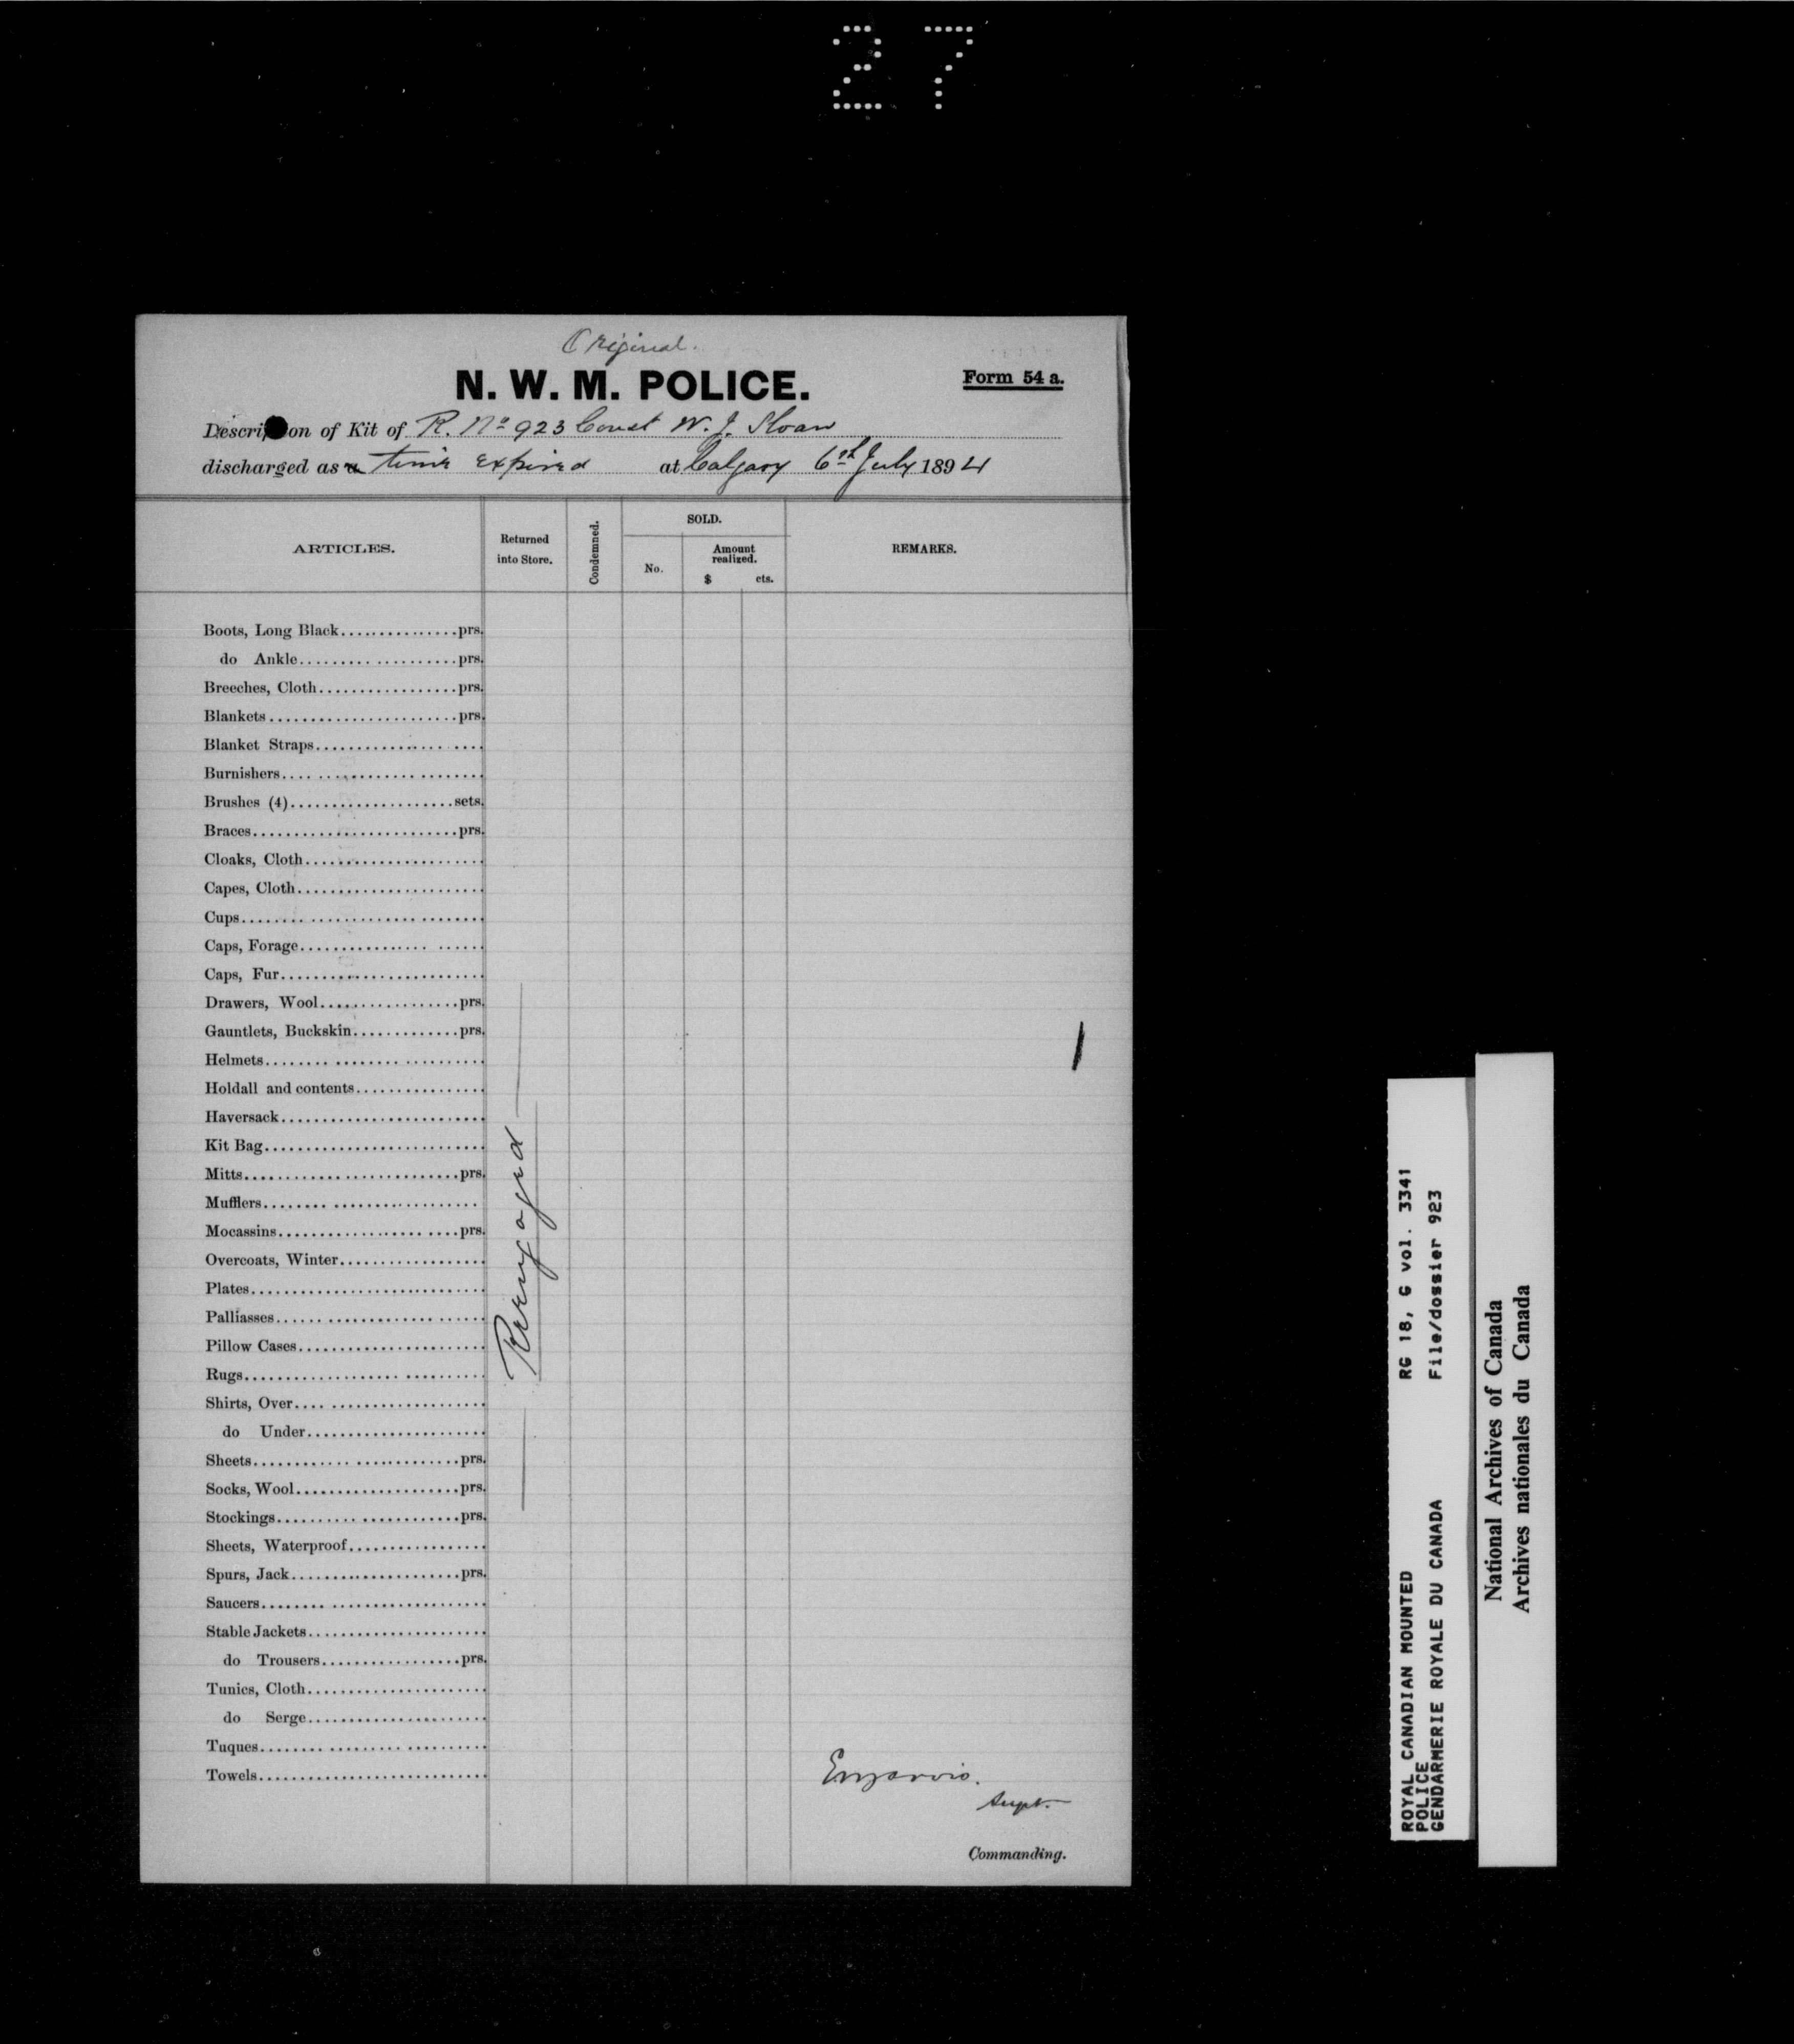 27
Original.
N. W. M. POLICE.
Form 54 a.
Descri on of Kit of R. No 923 Const W. J. Sloan
discharged as a time expired at Calgary 6th July 1894
ARTICLES.
Returned into Store.
Condemned.
SOLD.
No.
Amount realized.
$ cts.
REMARKS.
Boots, Long Black...............prs.
do Ankle....................prs.
Breeches, Cloth.................prs.
Blankets.......................prs.
Blanket Straps....................
Burnishers........................
Brushes (4)....................sets.
Braces.........................prs.
Cloaks, Cloth......................
Capes, Cloth.......................
Cups..............................
Caps, Forage......................
Caps, Fur.........................
Drawers, Wool.................prs.
Gauntlets, Buckskin.............prs.
Helmets...........................
Holdall and contents................
Haversack.........................
Kit Bag...........................
Mitts..........................prs.
Mufflers..........................
Mocassins......................prs.
Overcoats, Winter..................
Plates.............................
Palliasses..........................
Pillow Cases.......................
Rugs..............................
Shirts, Over.......................
do Under......................
Sheets.........................prs.
Socks, Wool....................prs.
Stockings......................prs.
Sheets, Waterproof.................
Spurs, Jack.....................prs.
Saucers...........................
Stable Jackets......................
do Trousers.................prs.
Tunics, Cloth......................
do Serge......................
Tuques............................
Towels............................
Reengaged
Supt.
Commanding.
ROYAL CANADIAN MOUNTED
POLICE
GENDARMERIE ROYALE DU CANADA
RG 18, G vol. 3341
File/dossier 923
National Archives of Canada
Archives nationales du Canada